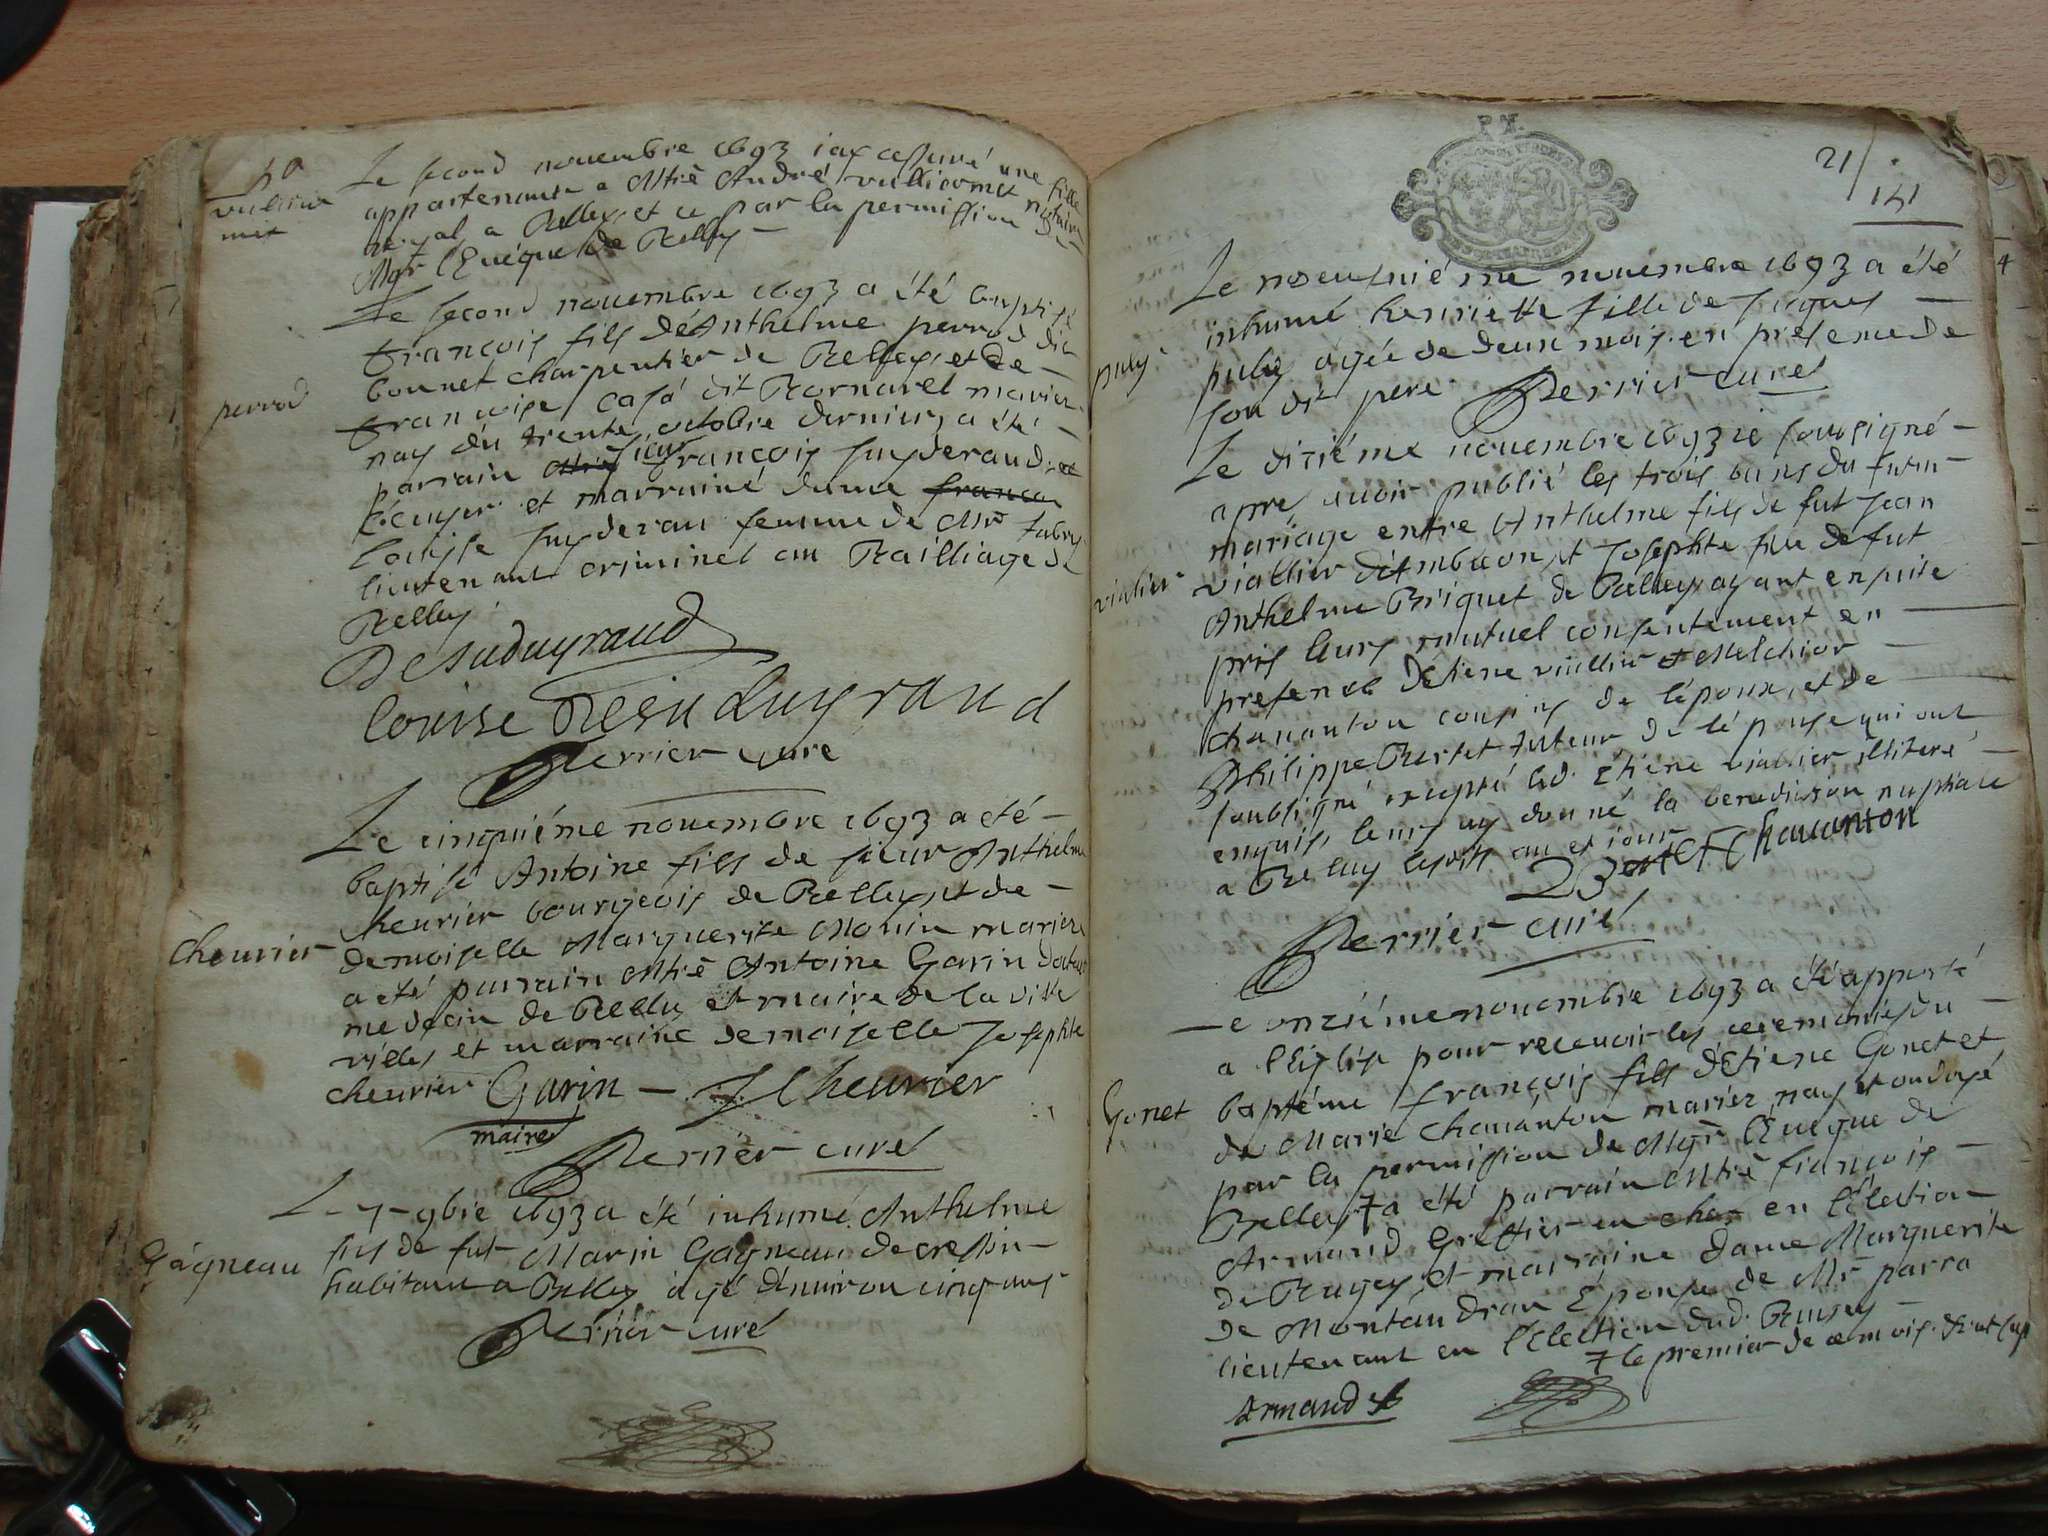 vulliermet
Le second novembre 1693 iay assuré une fille
appartenante a Mtrē André vulliermet nottaire
royal a Belley et ce par la permission de
Mgr l'Evéque de Belley —
perrod
Le second novembre 1693 a été baptisé
françois fils déAnthelme perrod dit
bonnet charpentier de Belley, et de —
francoise dit Bornarel mariez
nay du trente octobre dernier, a été —
parrain sieur françois Duyderaud
Ecuyer et marraine dame
Louise femme de Mr fabry
lieutenant criminel au Bailliage de
Belley
Louise
Perrier curé
Le cinquiéme novembre 1693 a été —
baptisé Antoine fils de sieur Anthelme
cheurier bourgeois de Belley, et de —
cheurier
demoiselle Marguerite Monin mariez
a été parrain Mtrē Antoine Garin docteur
medecin de Belley et maire de la ditte
ville, et marraine demoiselle Josephte
cheurier Garin — J Cheurier
maire
Perrier curé
Le 7 9bre 1693 a été inhumé Anthelme
Gagneau
fils de fut Marin Gagneau de cresson
habitant a Belley agé d'environ cinq ans
Perrier curé
21
141
Le neufviéme novembre 1693 a été
inhumé henriette fille de Jaques —
puly
puly agée de deux mois en presence de
son dit pere Perrier curé
Le diziéme novembre 1693 ie soussigné —
apres avoir publié les trois bans du futur
mariage entre Anthelme fils de fut Jean
viallier
viallier dit mbuon, et Josephte fille de fut
Anthelme Briquet de Belley ayant ensuite
pris leurs mutuel consentement en —
presence détiene viallier et Melchior —
chavanton cousins de l'époux, et de —
Philippe Bertet tuteur de l'épouse qui ont
soubsigné excepté led. Etiene viallier illiteré —
enquis, leurs ay donné la benediction nuptiale
a Belley lesdits an et iour
Chavanton
Perrier curé
Le onziéme novembre 1693 a été apporté
a l'Eglise pour recevoir les ceremonies du —
Gonet
baptéme françois fils d'Etiene Gonet et
de Marie chavanton mariez, nay et ondoyé
par la permission de Mgr l'Eveque de
Belley + a été parrain Mtrē françois —
Armand Greffier en chef en l'Election
de Bugey, et marraine dame Marguerite
de Montaudran Epouse de Mr parra
lieutenant en l'Election dud. Bugey —
+ le premier de ce mois
Armand